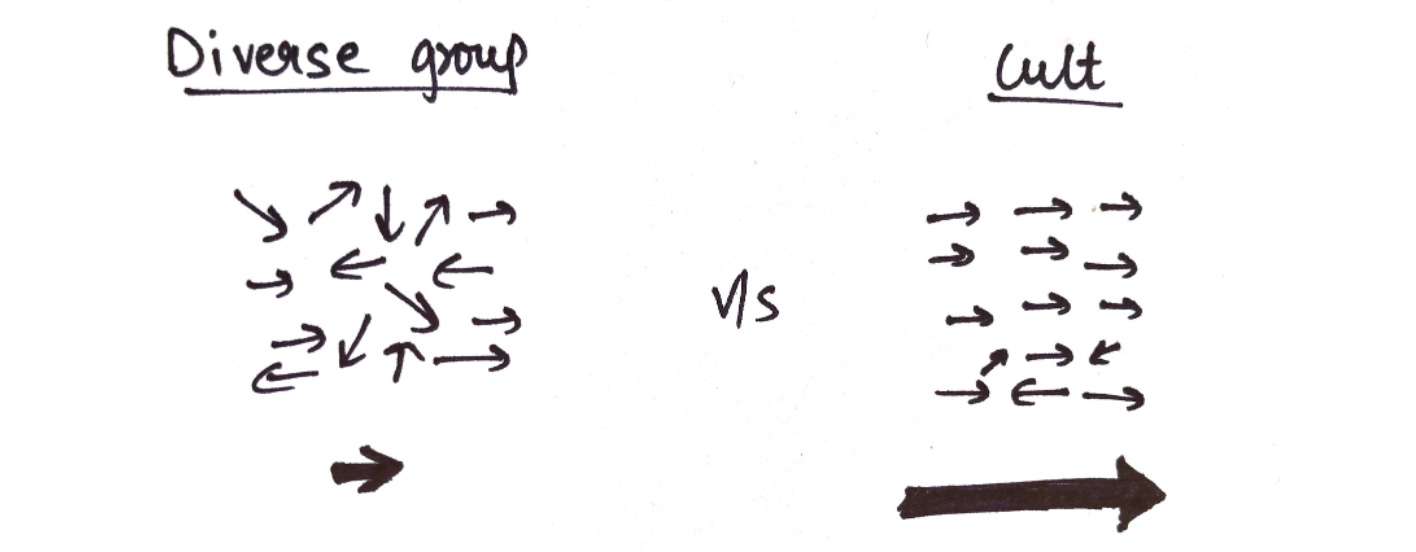 Diverse group
Cult
V/S